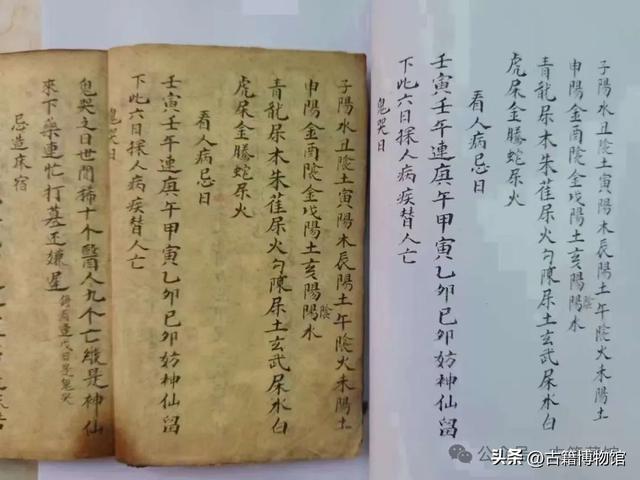 子陽水丑陰土寅陽木辰陽土午陰火未陽土
申陽金酉陰金戌陽土亥陽陽水
陰
青龍杘木朱雀杘火勾陳杘土玄武杘水白
虎杘金騰蛇杘火
看人病忌日
壬寅壬午連庚午甲寅乙卯己卯妨神仙留
下此六日探人病疾替人亡
鬼哭日
子陽水丑陰土寅陽木辰陽土午陰火未陽土
申陽金酉陰金戌陽土亥陽陽水
陰
青龍杘木朱雀杘火勾陳杘土玄武杘水白
虎杘金騰蛇杘火
看人病忌日
壬寅壬午連庚午甲寅乙卯己卯妨神仙留
下此六日探人病疾替人亡
鬼哭日
鬼哭之日世間稀十个醫人九个亡縱是神仙
來下藥連忙打墓还嫌遲
日是鬼哭
忌造床宿
公众号
头条 @古籍博物馆